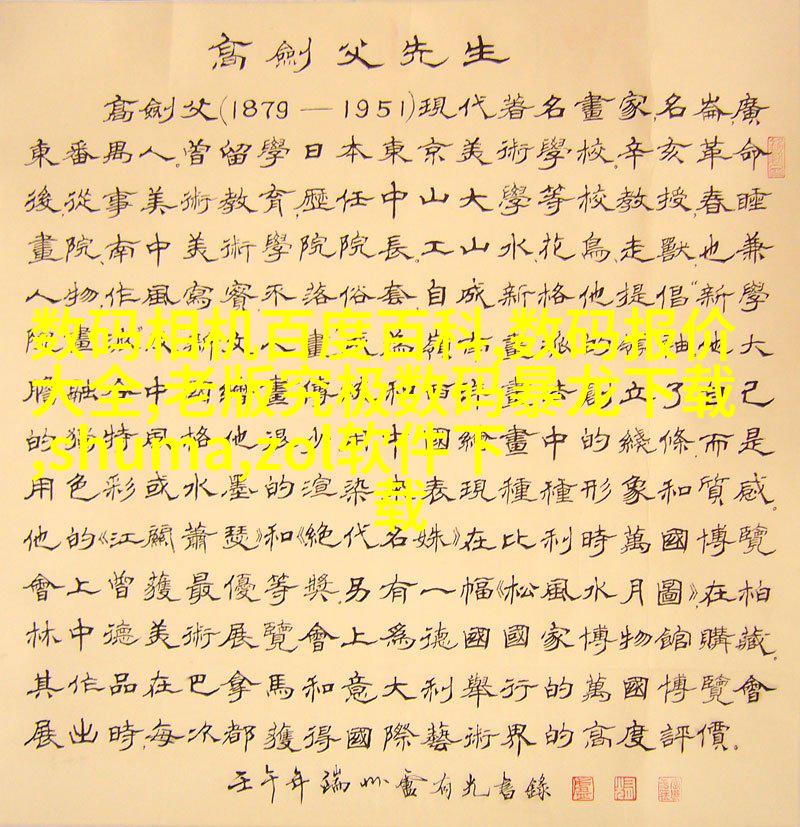 高劍父先生
高劍父(1879—1951)現代著名畫家,名崙,廣
東番禺人。曾留學日本東京美術學校。辛亥革命
後,從事美術教育,歷任中山大學等校教授,春睡
畫院,南中美術學院院長。工山水,花鳥,走獸,也兼
人物,作風寫實不落俗套自成新格,他提倡“新學
數码相机百度百科,数码报价
大全,老版究极数码暴龙下载
,shuma,zol软件下
载
院畫派 新 人畫 為嶺南畫派的領袖,他大
膽融合中國繪畫傳統和西 畫 創立了自己
的獨特風格,他 少 中國繪畫中的綫條,而是
用色彩或水墨的渲染 表現種種形象和質感。
他的《江關蕭瑟》和《絕代名姝》在比利時萬國博覽
會上曾獲最優等獎。另有一幅《松風水月圖》,在柏
林中德美術展覽會上為德國國家博物館購藏。
其作品在巴拿馬和意大利舉行的萬國博覽會
展出時,每次都獲得國際藝術界的高度評價。
壬午年端州盧有光書錄